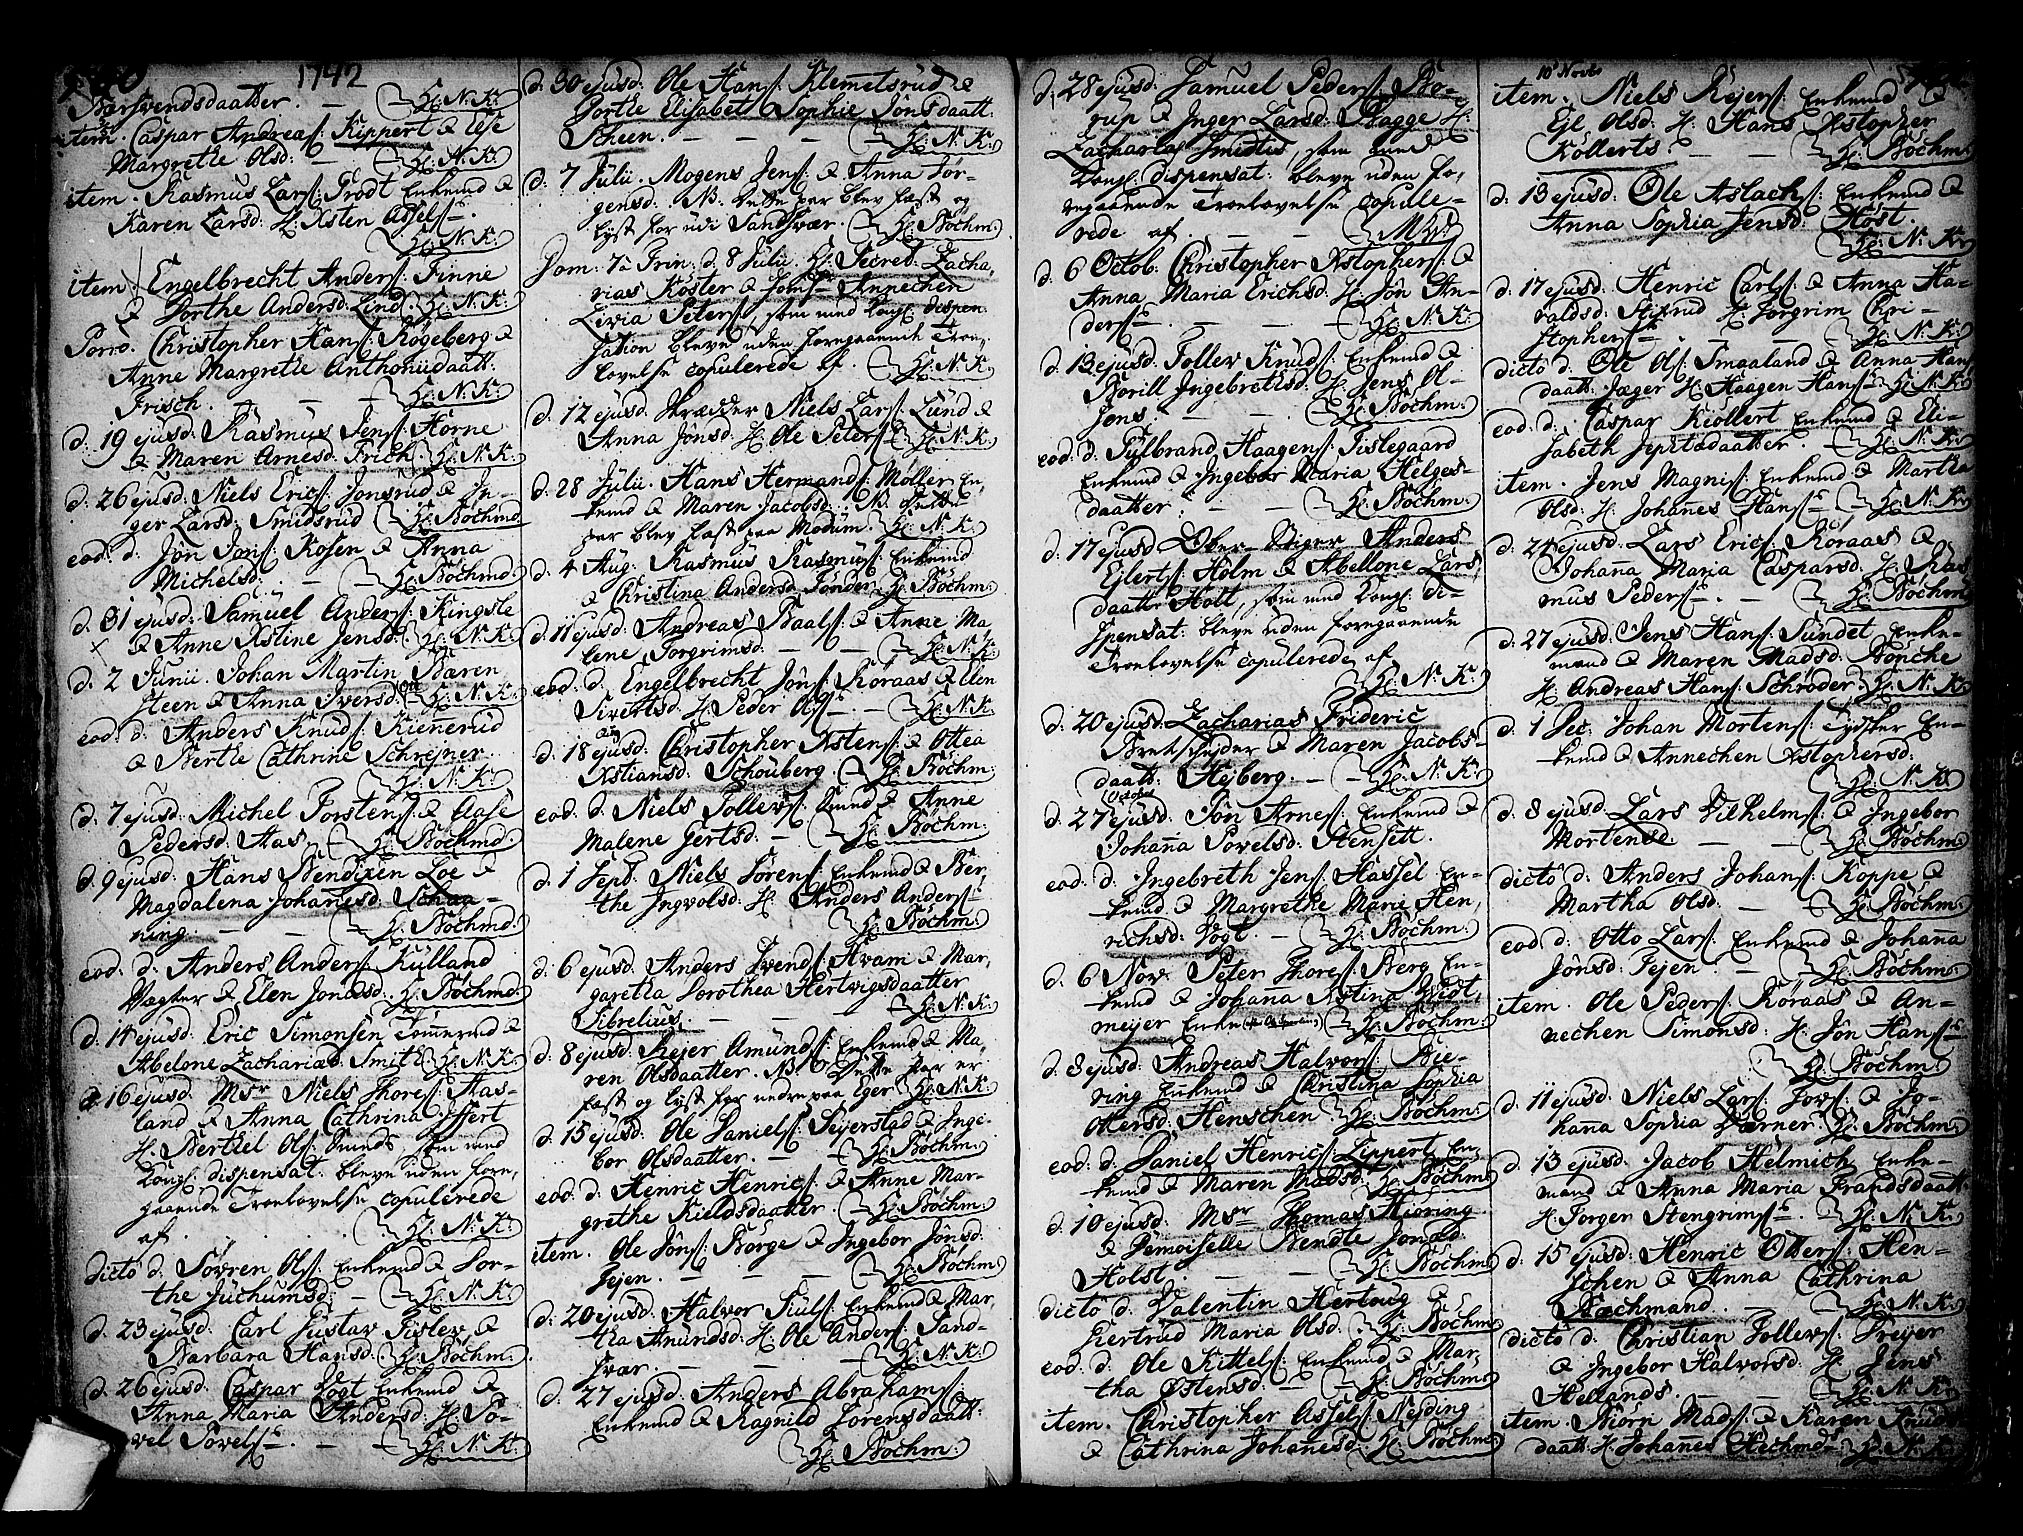 1742
Barsvendsdaatter. — H. N. K:
item. Caspar Andreas: Kippert & Else
Margrethe Olsd: — H. N. K:
item. Rasmus Lars: Trodt Enkemd &
Karen Larsd: H. Xsten Assels:
H. N. K:
item. Engelbrecht Anders: Finne
& Dorthe Andersd: Lind. H. N. K:
Porro. Christopher Hans: Kogeberg &
Anne Margrethe Anthonidaatt:
Frisch. — H. N. K:
d: 19 ejusd: Rasmus Jens: Horne
& Maren Arnesd: Frich H. N. K:
d: 26 ejusd: Niels Erics: Jonsrud & In-
ger Larsd: Smidsrud H. Böchmd
eod: d: Jon Jons: Rosen & Anna
Michelsd: — H: Böchmd:
d: 31 ejusd: Samuel Anders: Kingsle
& Anne Xstine Jensd: H. N. K:
d: 2 Junii. Johan Martin Bären
steen & Anna Iversd: H. N. K:
eod: d: Anders Knuds: Kiennerud
& Berthe Cathrine Schrejner.
H. N. K:
d: 7 ejusd: Michel Torstens: & Aase
Pedersd: Aas. H. Böchmd:
d. 9 ejusd: Hans Bendixen Loe &
Magdalena Johannesd: Schaa-
ning. — H: Böchmd:
eod: d: Anders Anders: Kulland
Vægter & Elen Jonasd: H: Böchmd:
d: 14 ejusd: Eric Simonsen Tommerud &
Abelone Zachariæd: Smith H. N. K:
d: 16 ejusd: Msr Niels Thores: Aas-
land & Anna Cathrina Effert
H. Berthel Ols: Sunds, som med
Kongl: dispensat: bleve uden forre-
gaaende Troelovelse copulerede
af. H. N. K:
dicto d: Sövren Ols: Enkemd & Dor-
the Juchumsd: — H. N. K:
d: 23 ejusd: Carl Gustav Tislev &
Barbara Hansd: H: Böchm:
d: 26 ejusd: Caspar Vogt Enkemd &
Anna Maria Andersd: H. Po-
vel Povels: — H. N. K:
d: 30 ejusd: Ole Hans: Klemmetsrud &
Dorthe Elisabet Sophie Jonsdaatt:
Scheen. — H. N. K:
d: 7 Julii. Mogens Jens: & Anna Jör-
gensd: NB: Dette par blev fæst og
lyst for udi Sandsvær. H: Böchm:
Dom: 7a Trin: d: 8 Julii. Hr: Secret: Zacha-
rias Köster & Jomfr Annechen
Livia Peters:, som med Kongl: dispen-
sation bleve uden foregaaende Troe-
lovelse copulerede af. H. N. K:
d: 12 ejusd: Skrædder Niels Lars: Lund &
Anna Jönsd: H: Ole Peters: H. N. K:
d: 28 Julii. Hans Hermands: Möller En-
kemd & Maren Jacobsd: NB: Dette
par blev fæst paa Modum. H. N. K:
d: 4 Aug: Rasmus Rasmus: Enkemd
& Christina Andersd: Tönder. H: Böchm:
d: 11 ejusd: Andreas Paals: & Anne Ma-
lene Torgrimsd: — H. N. K:
eod: d: Engelbrecht Jöns: Röraas & Elen
Sivertsd: H: Peder Ols: — H. N. K:
d: 18 ejusd: Christopher Xstens: & Ottea
Xstiansd: Schouberg H: Böchm:
eod: d: Niels Tollevs: Smed & Anne
Malene Gertsd: — H: Böchm:
d: 1 Sept: Niels Sörens: Enkemd & Ber-
the Ingvolsd: H: Anders Anders:
H: Böchm:
d: 6 ejusd: Anders Svends: Hvam & Mar-
garetha Dorothea Hertvigsdaatter
Sibrelius. — H. N. K:
d: 8 ejusd: Rejer Amunds: Enkemd & Ma-
ren Olsdaatter. NB: Dette par er
fæst og lyst for nedre paa Eger H. N. K:
d: 15 ejusd: Ole Daniels: Sejerstad & Inge-
bor Olsdaatter. — H: Böchm:
eod: d: Henric Henrics: & Anne Mar-
grethe Kieldsdaatter. H: Böchm:
item. Ole Jöns: Börge & Ingebor Jönsd:
Fejen. — H: Böchm:
d: 20 ejusd: Halvor Juuls: Enkemd & Mar-
tha Amundsd: H: Ole Anders: Sand-
svær. — H. N. K:
d: 27 ejusd: Anders Abrahams:
Enkemd & Ragnild Sörensdaatt:
H: Böchm:
d: 28 ejusd: Samuel Peders: Bo-
gup & Inger Larsd: Bagge H:
Zacharias Smidtis, som med
Kongl: dispensat: bleve uden fo-
regaaende Troelovelse copule-
rede af. —
d: 6 Octob: Christopher Xstophers: &
Anna Maria Erichsd: H: Jön An-
ders: — H. N. K:
d: 13 ejusd: Tollev Knuds: Enkemd &
Borill Ingebrethsd: H: Jens Ol-
sens — H: Böchm:
eod: d: Gulbrand Haagens: Tislegaard
Enkemd & Ingebor Maria Helges-
daatter. — H: Böchm:
d: 17 ejusd: Ober-Stiger Anders
Ejlerts: Holm & Abellone Lars-
daatt: Holt, som med Kongl: di-
spensat: bleve uden foregaaende
Troelovelse copulerede af
H. N. K:
d: 20 ejusd: Zacharias Frideric
Bretschejder & Maren Jacobs-
daatt: Hejberg. — H. N. K:
d: 27 ejusd: Jön Arnes: Enkemd &
Johanna Povelsd: Stensett.
eod: d: Ingebreth Jens: Hassel En-
kemd & Margrethe Marie Hen-
richsd: Vogt — H: Böchm:
d: 6 Nov: Peter Thores: Berg En-
kemd & Johanna Xstina Widt-
mejer Enke H: Böchm:
d: 8 ejusd: Andreas Halvors: Bie-
ring Enkemd & Christina Sophia
Ottersd: Henschen H: Böchm:
eod: d: Daniel Henrics: Lippert En-
kemd & Maren Madsd: H: Böchm:
d: 10 ejusd: Msr Thomas Hiöring
& Demoiselle Bendte Jonæd:
Holst. — H: Böchm:
dicto d: Valentin Hertvig &
Giertrud Maria Olsd: H: Böchm:
eod: d: Ole Kittels: Enkemd & Mar-
tha Östensd: — H: Böchm:
item. Christopher Assels: Nejding
& Cathrina Johannesd: H: Böchm:
10 Novb
item. Niels Rejers: Enkemd &
Ejl Olsd: H: Hans Xstopher
Kollerts — H: Böchm:
d: 13 ejusd: Ole Aslachs: Enkemd &
Anna Sophia Jensd: Höst.
H. N. K:
d: 17 ejusd: Henric Carls: & Anna Ha-
raldsd: Stixrud H: Jorgrim Chri-
stophers: — H. N. K:
dicto d: Ole Ols: Smaaland & Anna Hans
daatt: Jæger H: Haagen Hans: H. N. K:
eod: d: Caspar Kiöllert Enkemd & Eli-
sabeth Jeptedaatter. — H. N. K:
item. Jens Magnis: Enkemd & Martha
Olsd: H: Johannes Hans: — H. N. K:
d: 24 ejusd: Lars Erics: Röraas &
Johanna Maria Caspersd: H: Ras
mus Peders: — H: Böchm:
d: 27 ejusd: Jens Hans: Sundet Enke-
mand & Maren Madsd: Böncke
H: Andreas Hans: Schröder H. N. K:
d: 1 Dec: Johan Mortens: Tydsker En-
kemd & Annechen Xstophersd:
H. N. K:
d: 8 ejusd: Lars Vilhelms: & Ingebor
Mortensd: — H: Böchmd
dicto d: Anders Johans: Koppe &
Martha Olsd: — H: Böchm:
eod d: Otto Lars: Enkemd & Johanna
Jönsd: Fejen. — H: Böchm:
item. Ole Peders: Röraas & An-
nechen Simonsd: H: Jön Hans:
H: Böchm:
d: 11 ejusd: Niels Lars: Fors: & Jo-
hana Sophia Dörner H: Böchm:
d: 13 ejusd: Jacob Helmich Enke-
mand & Anna Maria Frandsdaatt:
H: Torger Stengrims: — H. N. K:
d: 15 ejusd: Henric Otters: Hen-
schen & Anna Cathrina
Bachmand. — H. N. K:
dicto d: Christian Tollevs: Dreyer
& Ingebor Halvorsd: H: Jens
Hellands. — H. N. K:
item. Biörn Mads: & Karen Knuds-
daatt: H: Johannes Hechmds: H. N. K: